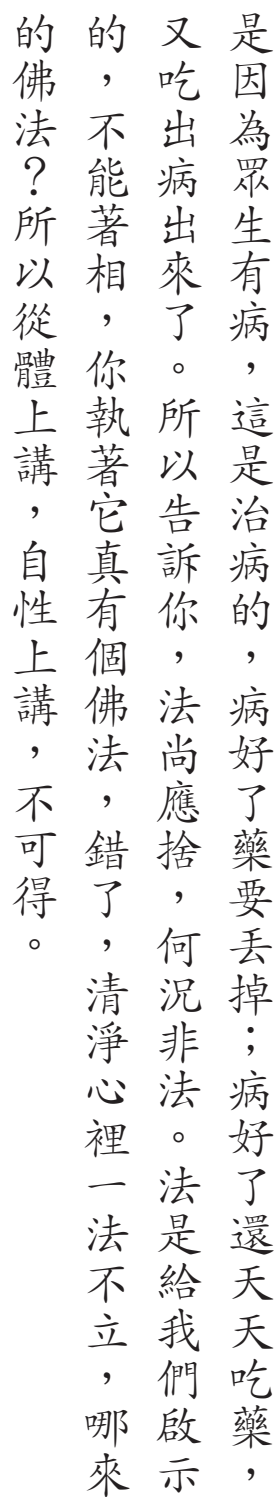 是因為眾生有病，這是治病的，病好了藥要丟掉；病好了還天天吃藥，
又吃出病出來了。所以告訴你，法尚應捨，何況非法。法是給我們啟示
的，不能著相，你執著它真有個佛法，錯了，清淨心裡一法不立，哪來
的佛法？所以從體上講，自性上講，不可得。